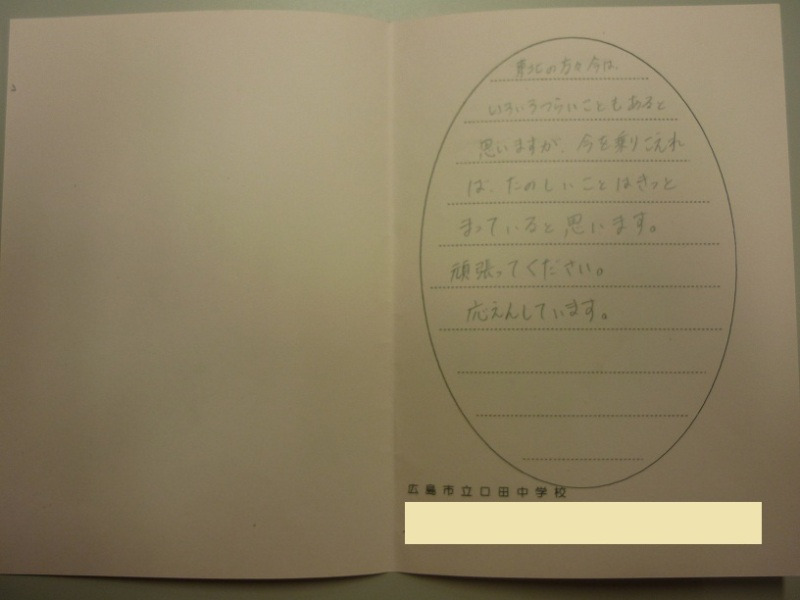 東北の方々今は、
いろいろつらいこともあると
思いますが、今を乗りこえれ
ば、たのしいことはきっと
まっていると思います。
頑張ってください。
応えんしています。
広島市立口田中学校